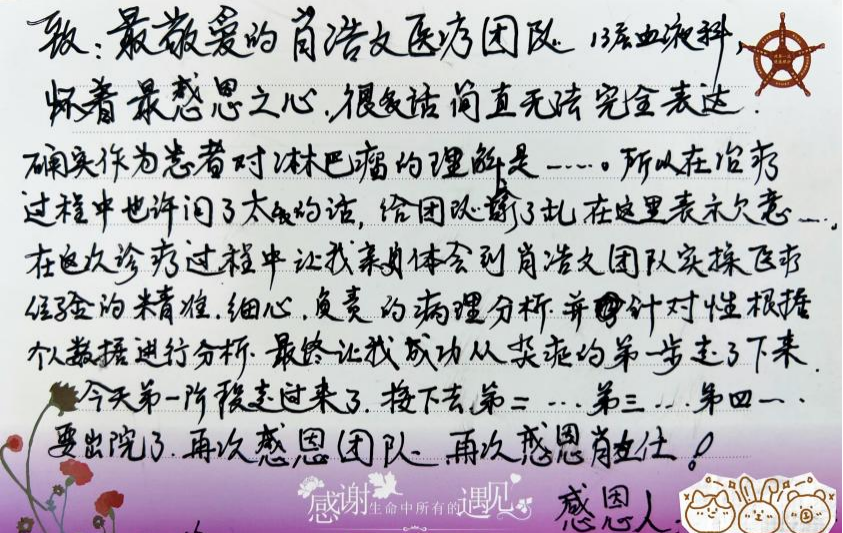 致：最敬爱的肖浩文医疗团队 13层血液科，
怀着最感恩之心，很多话简直无法完全表达.
确实作为患者对淋巴瘤的理解是……。所以在治疗
过程中也许问了太多的话，给团队添了乱在这里表示欠意…，
在这次诊疗过程中让我亲身体会到肖浩文团队实操医疗
经验的精准.细心.负责的病理分析.并针对性根据
个人数据进行分析.最终让我成功从的第一步走了下来.
今天第一阶段走过来了.接下去第二…第三…第四…
要出院了.再次感恩团队.再次感恩肖主任！
感谢生命中所有的遇见
感恩人：